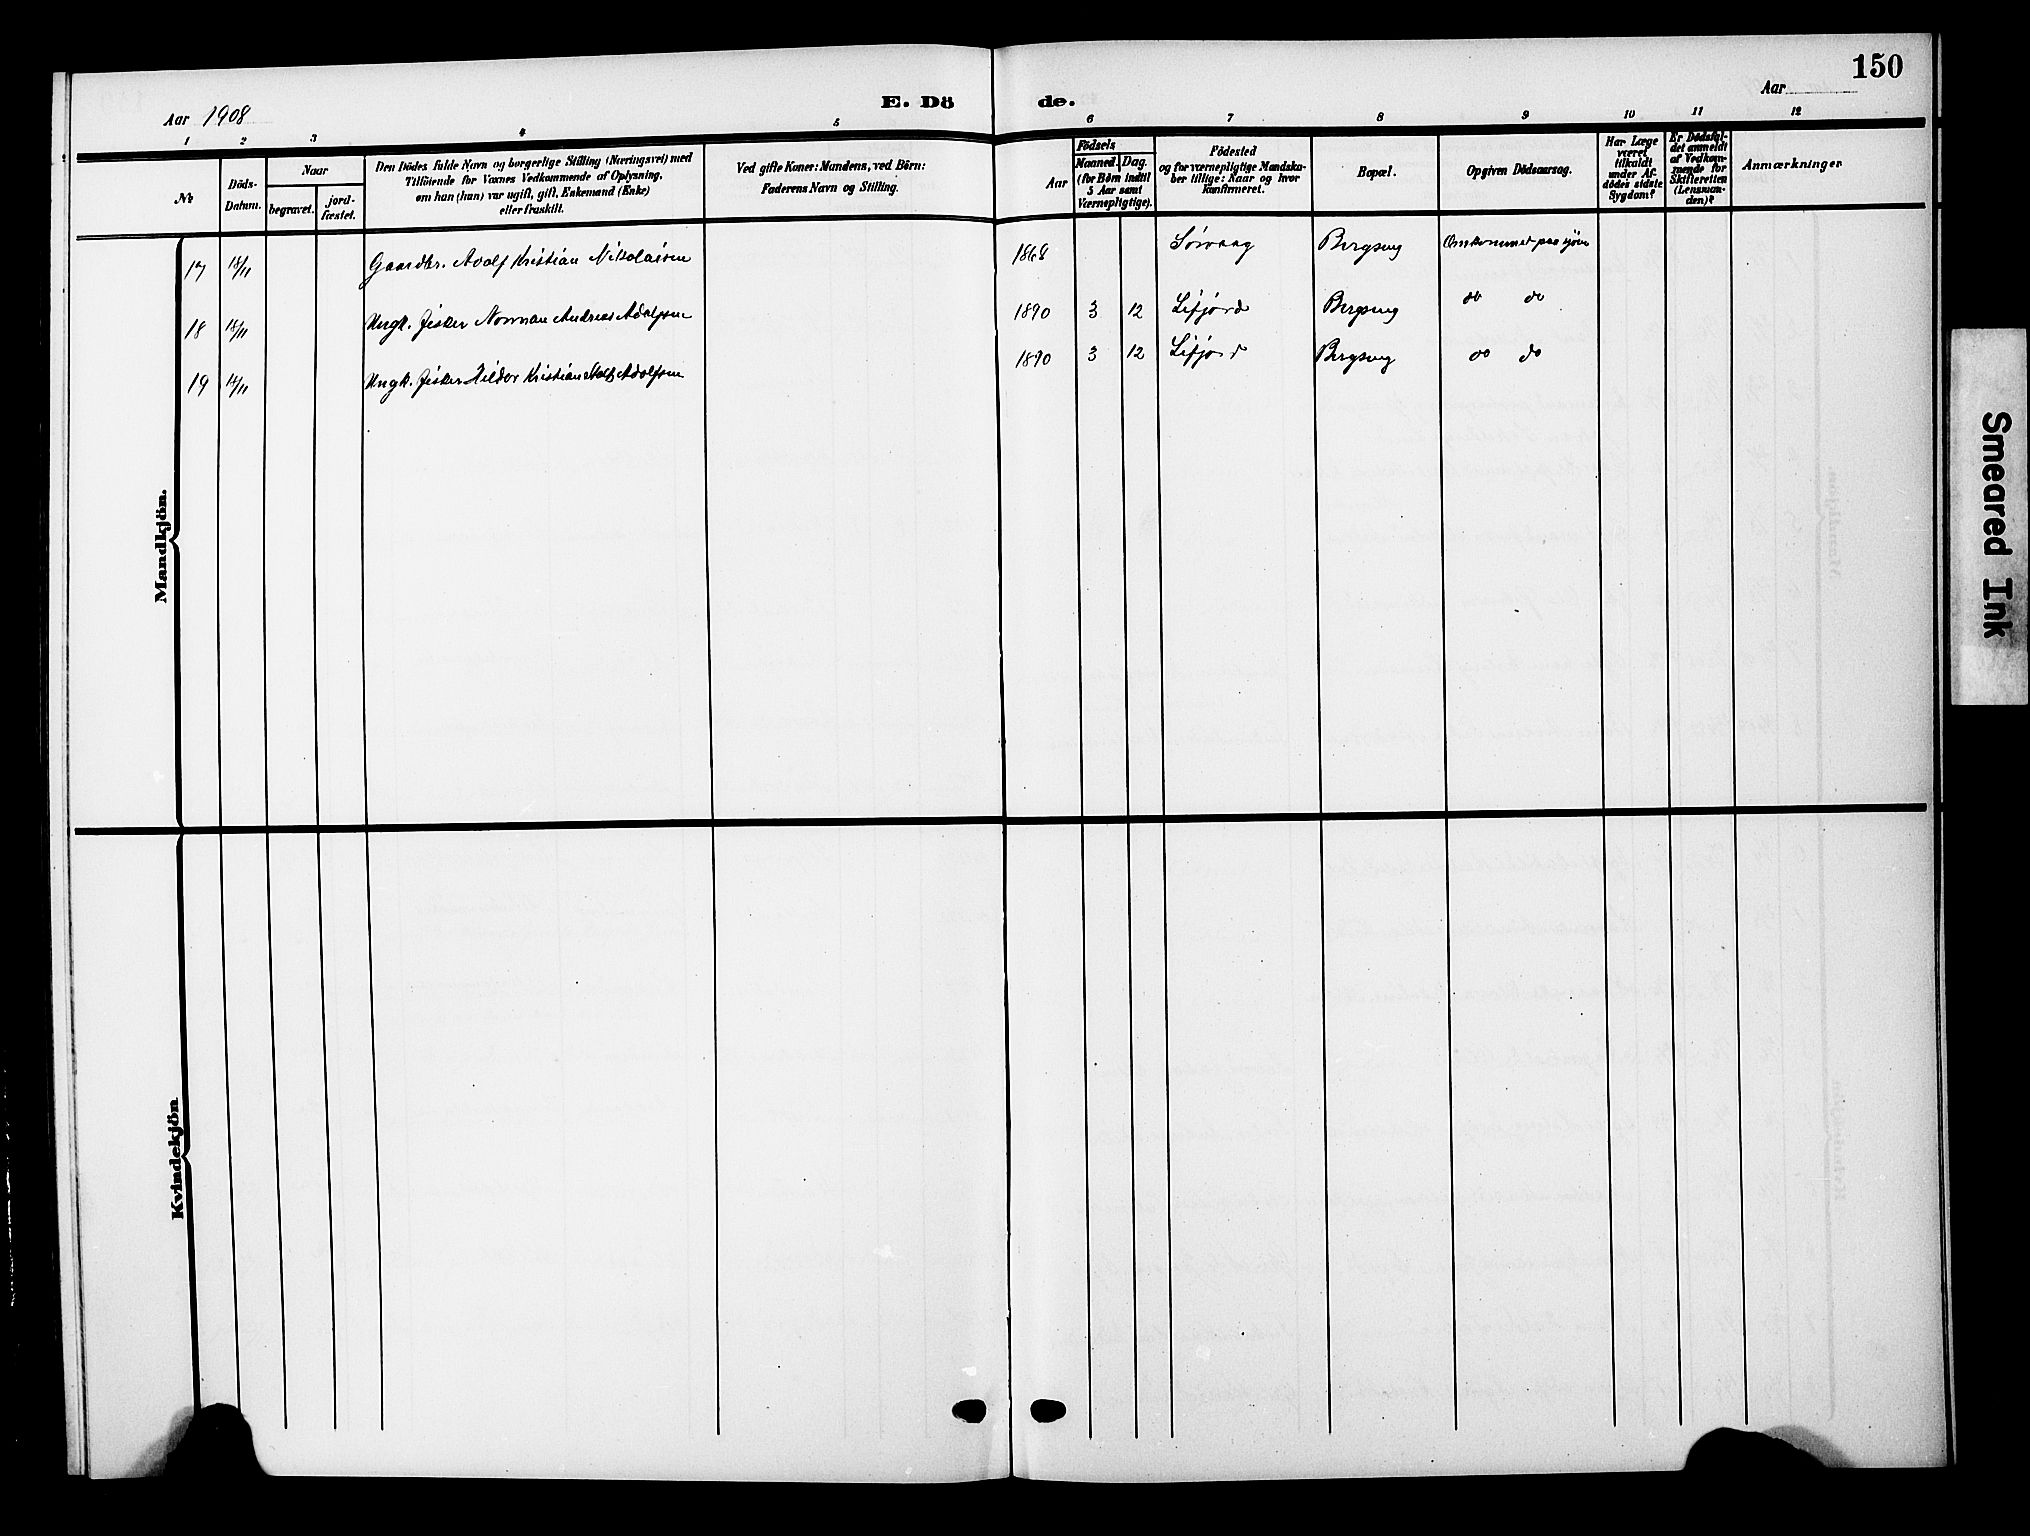 150
Aar 1908
E. Dö de.
Aar
1 2 3 4 5 6 7 8 9 10 11 12
№
Döds-
Datum.
Naar
begravet.
jord-
fæstet.
Den Dödes fulde Navn og borgerlige Stilling (Næringsvei) med
Tilföiende for Voxnes Vedkommende af Oplysning,
om han (hun) var ugift, gift, Enkemand (Enke)
eller fraskilt.
Ved gifte Koner: Mandens, ved Börn:
Faderens Navn og Stilling.
Födsels
Aar
Maaned. Dag.
(for Börn indtil
5 Aar samt
Værnepligtige).
Födested
og for værnepligtige Mandska-
ber tillige: Naar og hvor
konfirmeret.
Bopæl.
Opgiven Dödsaarsag.
Har Læge
været
tilkaldt
under Af-
dödes sidste
Sygdom?
Er Dödsfal-
det anmeldt
af Vedkom-
mende for
Skifteretten
(Lensman-
den)?
Anmærkninger
Mandkjön.
17 18/11 Gaardbr. Adolf Kristian Nikolaisen 1868 Sörvaag Bergseng Omkommet paa sjöen
18 18/11 Ungk. fisker Norman Andreas Adolfsen 1890 3 12 Lifjord Bergseng do do
19 Ungk. fisker Hildor Kristian Adolfsen 1890 3 12 Lifjord Bergseng do do
Kvindekjön
Smeared Ink